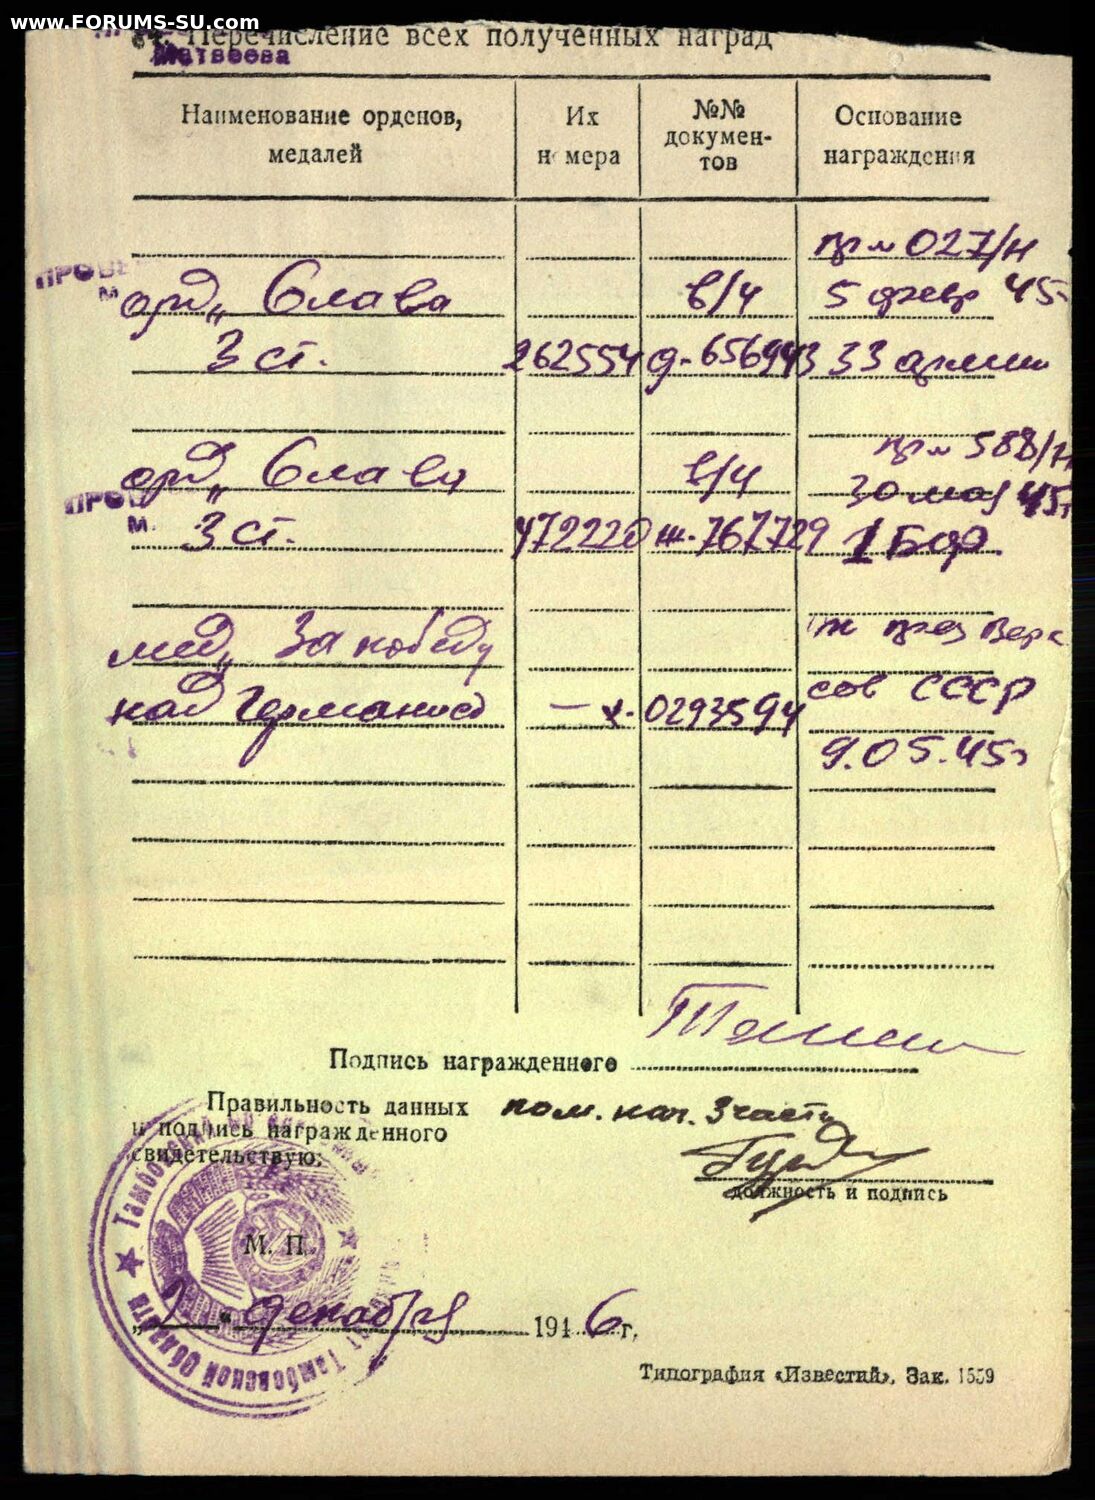 www.FORUMS-SU.com
Перечисление всех полученных наград
Матвеева
Наименование орденов, медалей
Их номера
№№ документов
Основание награждения
пр-м 027/н
орд„ Слава
в/ч
5 февр 45
3 ст.
262554
д-656943
33 армии
пр-м 588/н
орд„ Слава
в/ч
30 мая 45г
3 ст.
472220
ш-767729
1 Бф.
мед„ За победу
през Верх
над Германией
—
х-0293594
сов СССР
9.05.45г
Подпись награжденного
Правильность данных
пом. нач. 3 части
и подпись награжденного
свидетельствую:
должность и подпись
М. П.
„2" декабря 1946 г.
Тамбовской Области
Типография «Известий». Зак. 1559